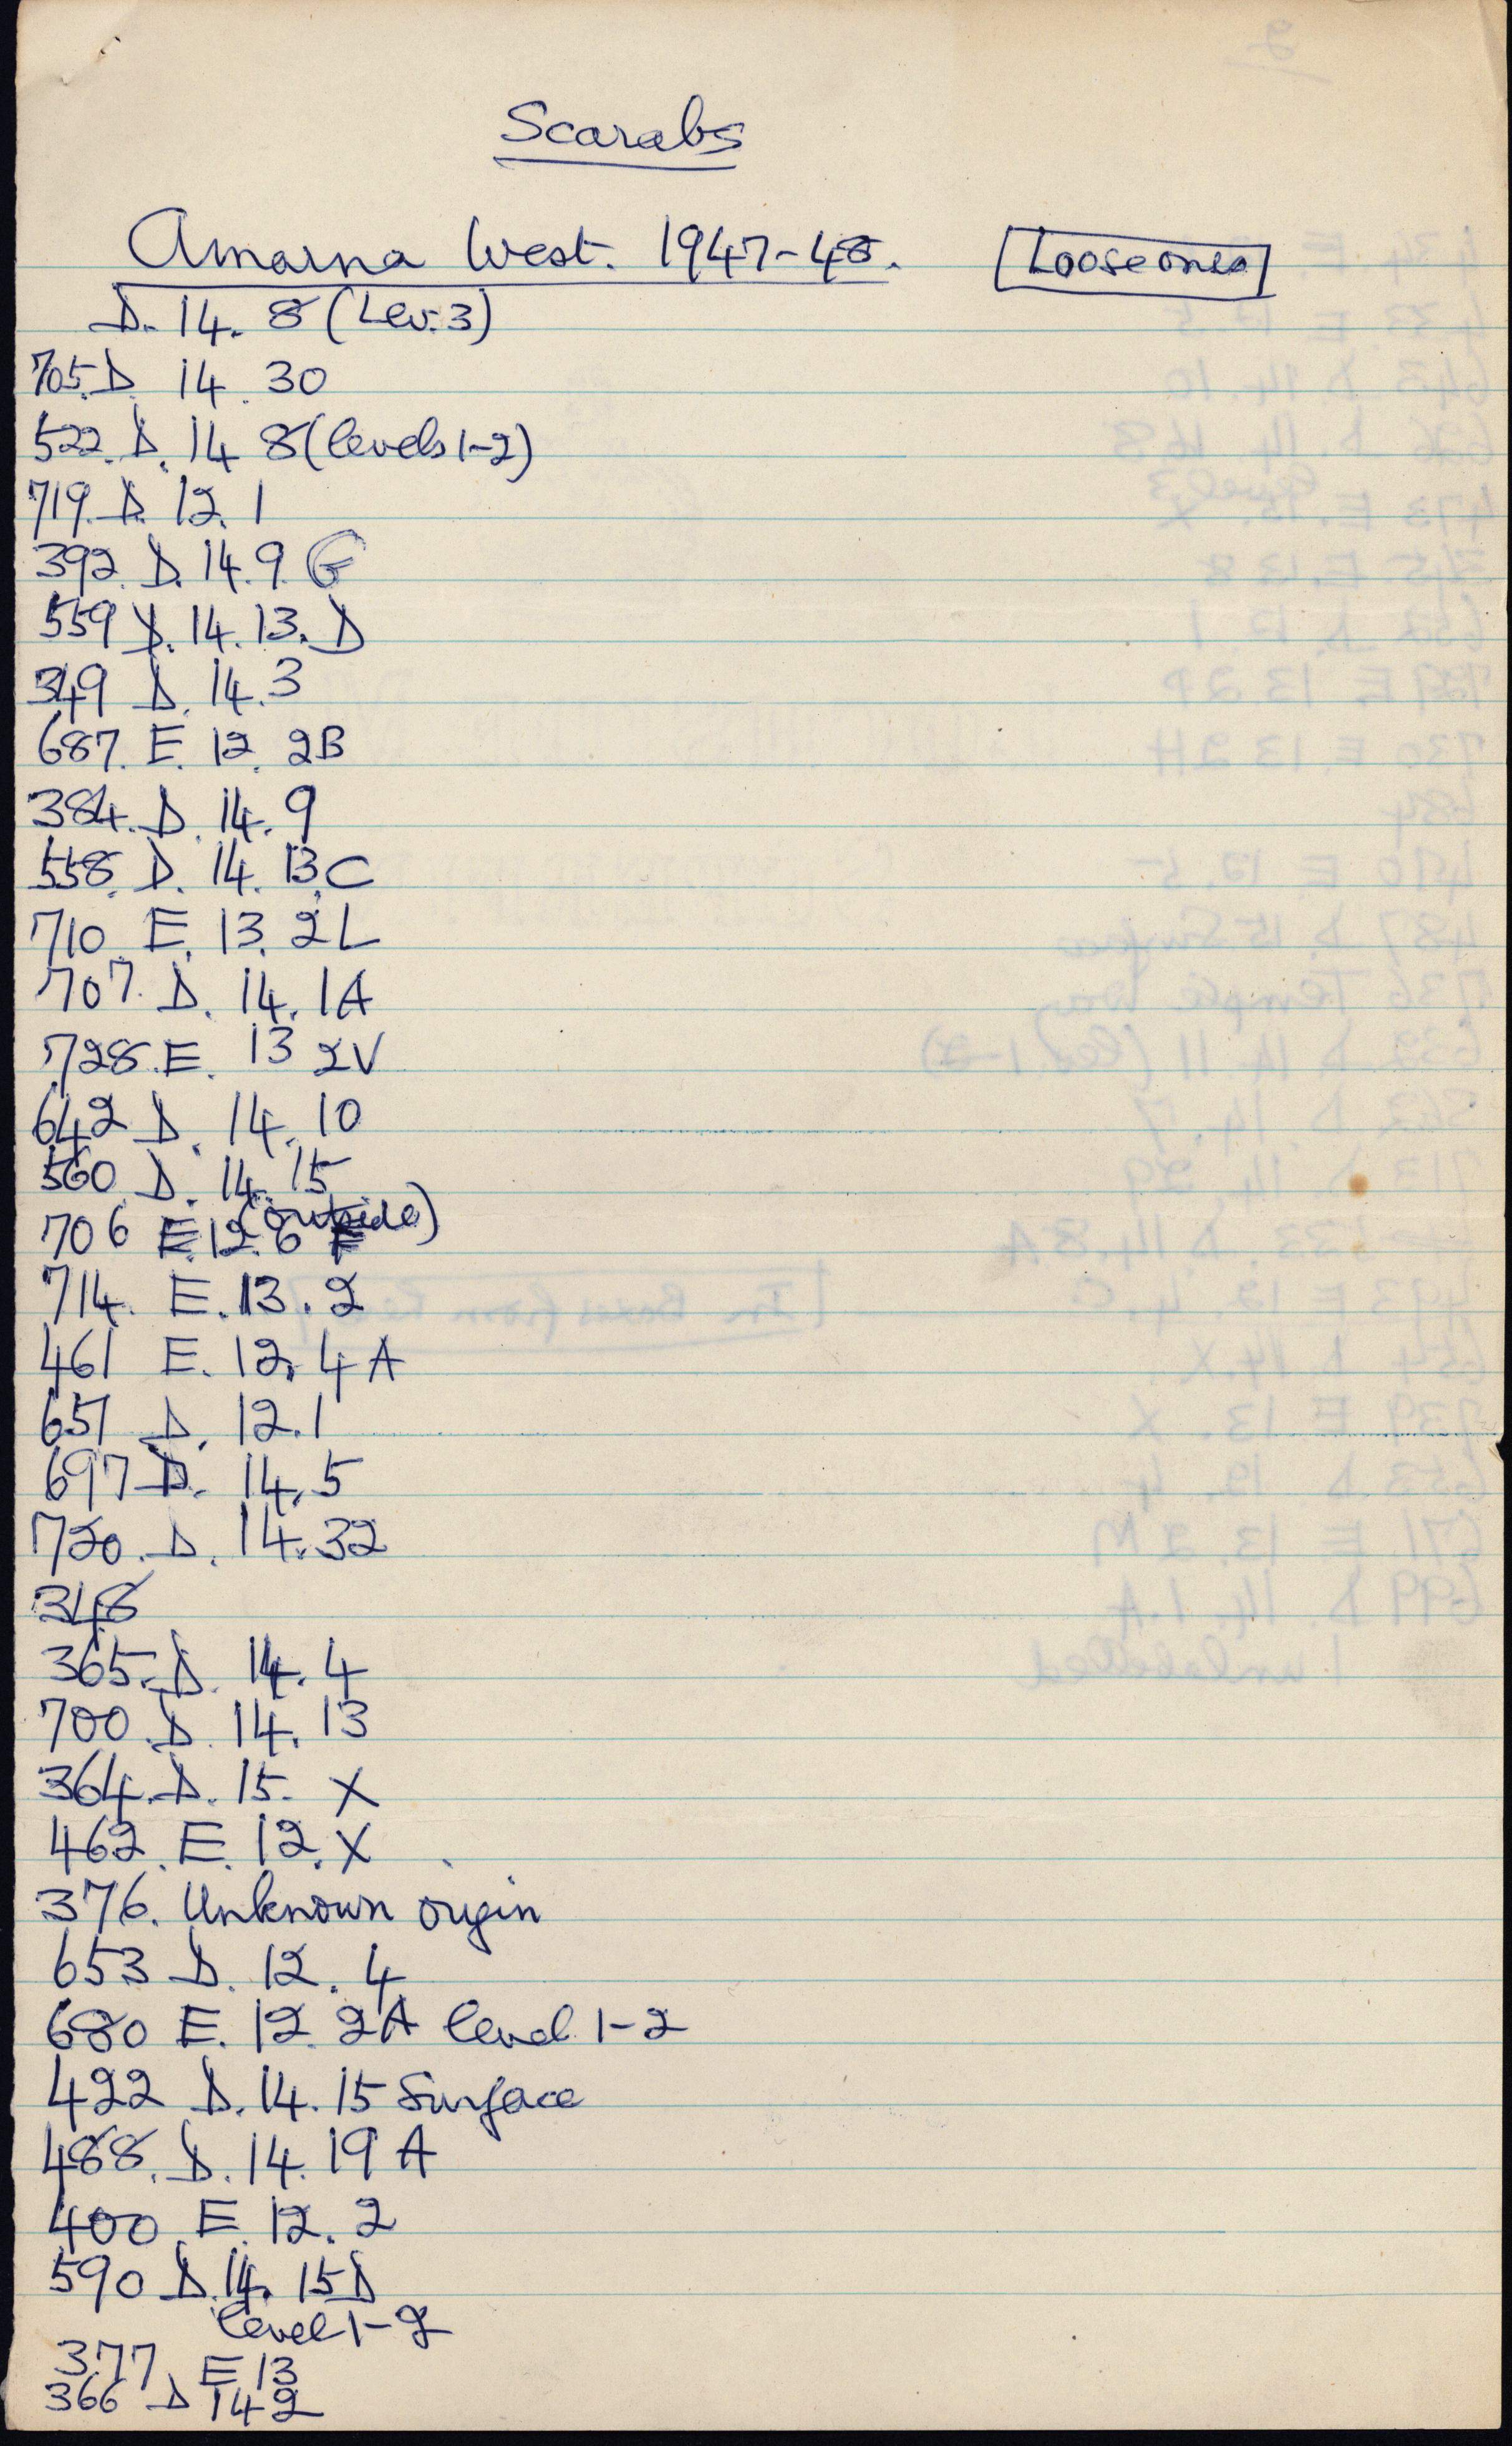 Scarabs
Amarna West. 1947-48. Loose ones
D. 14. 8 (Lev. 3)
705. D. 14. 30
522. D. 14 8 (levels 1-2)
719. D. 12. 1
392. D. 14. 9. G
559 D. 14. 13. D
349 D. 14. 3
687. E. 12. 2B
384. D. 14. 9
558. D. 14. 13. C
710. E. 13. 2L
707. D. 14. 1A
728. E. 13 2V
642 D. 14. 10
560 D. 14. 15
(outside)
706 E. 12. 6
714. E. 13. 2
461 E. 12. 4A
651 D. 12. 1
697 D. 14. 5
720. D. 14. 32
348
365. D. 14. 4
700. D. 14. 13
364. D. 15. X
462. E. 12. X
376. Unknown origin
653 D. 12. 4
680 E. 12. 2A level 1-2
422 D. 14. 15 Surface
488. D. 14. 19 A
400 E. 12. 2
590 D. 14. 15D
level 1-2
377 E 13
366 D 14 2